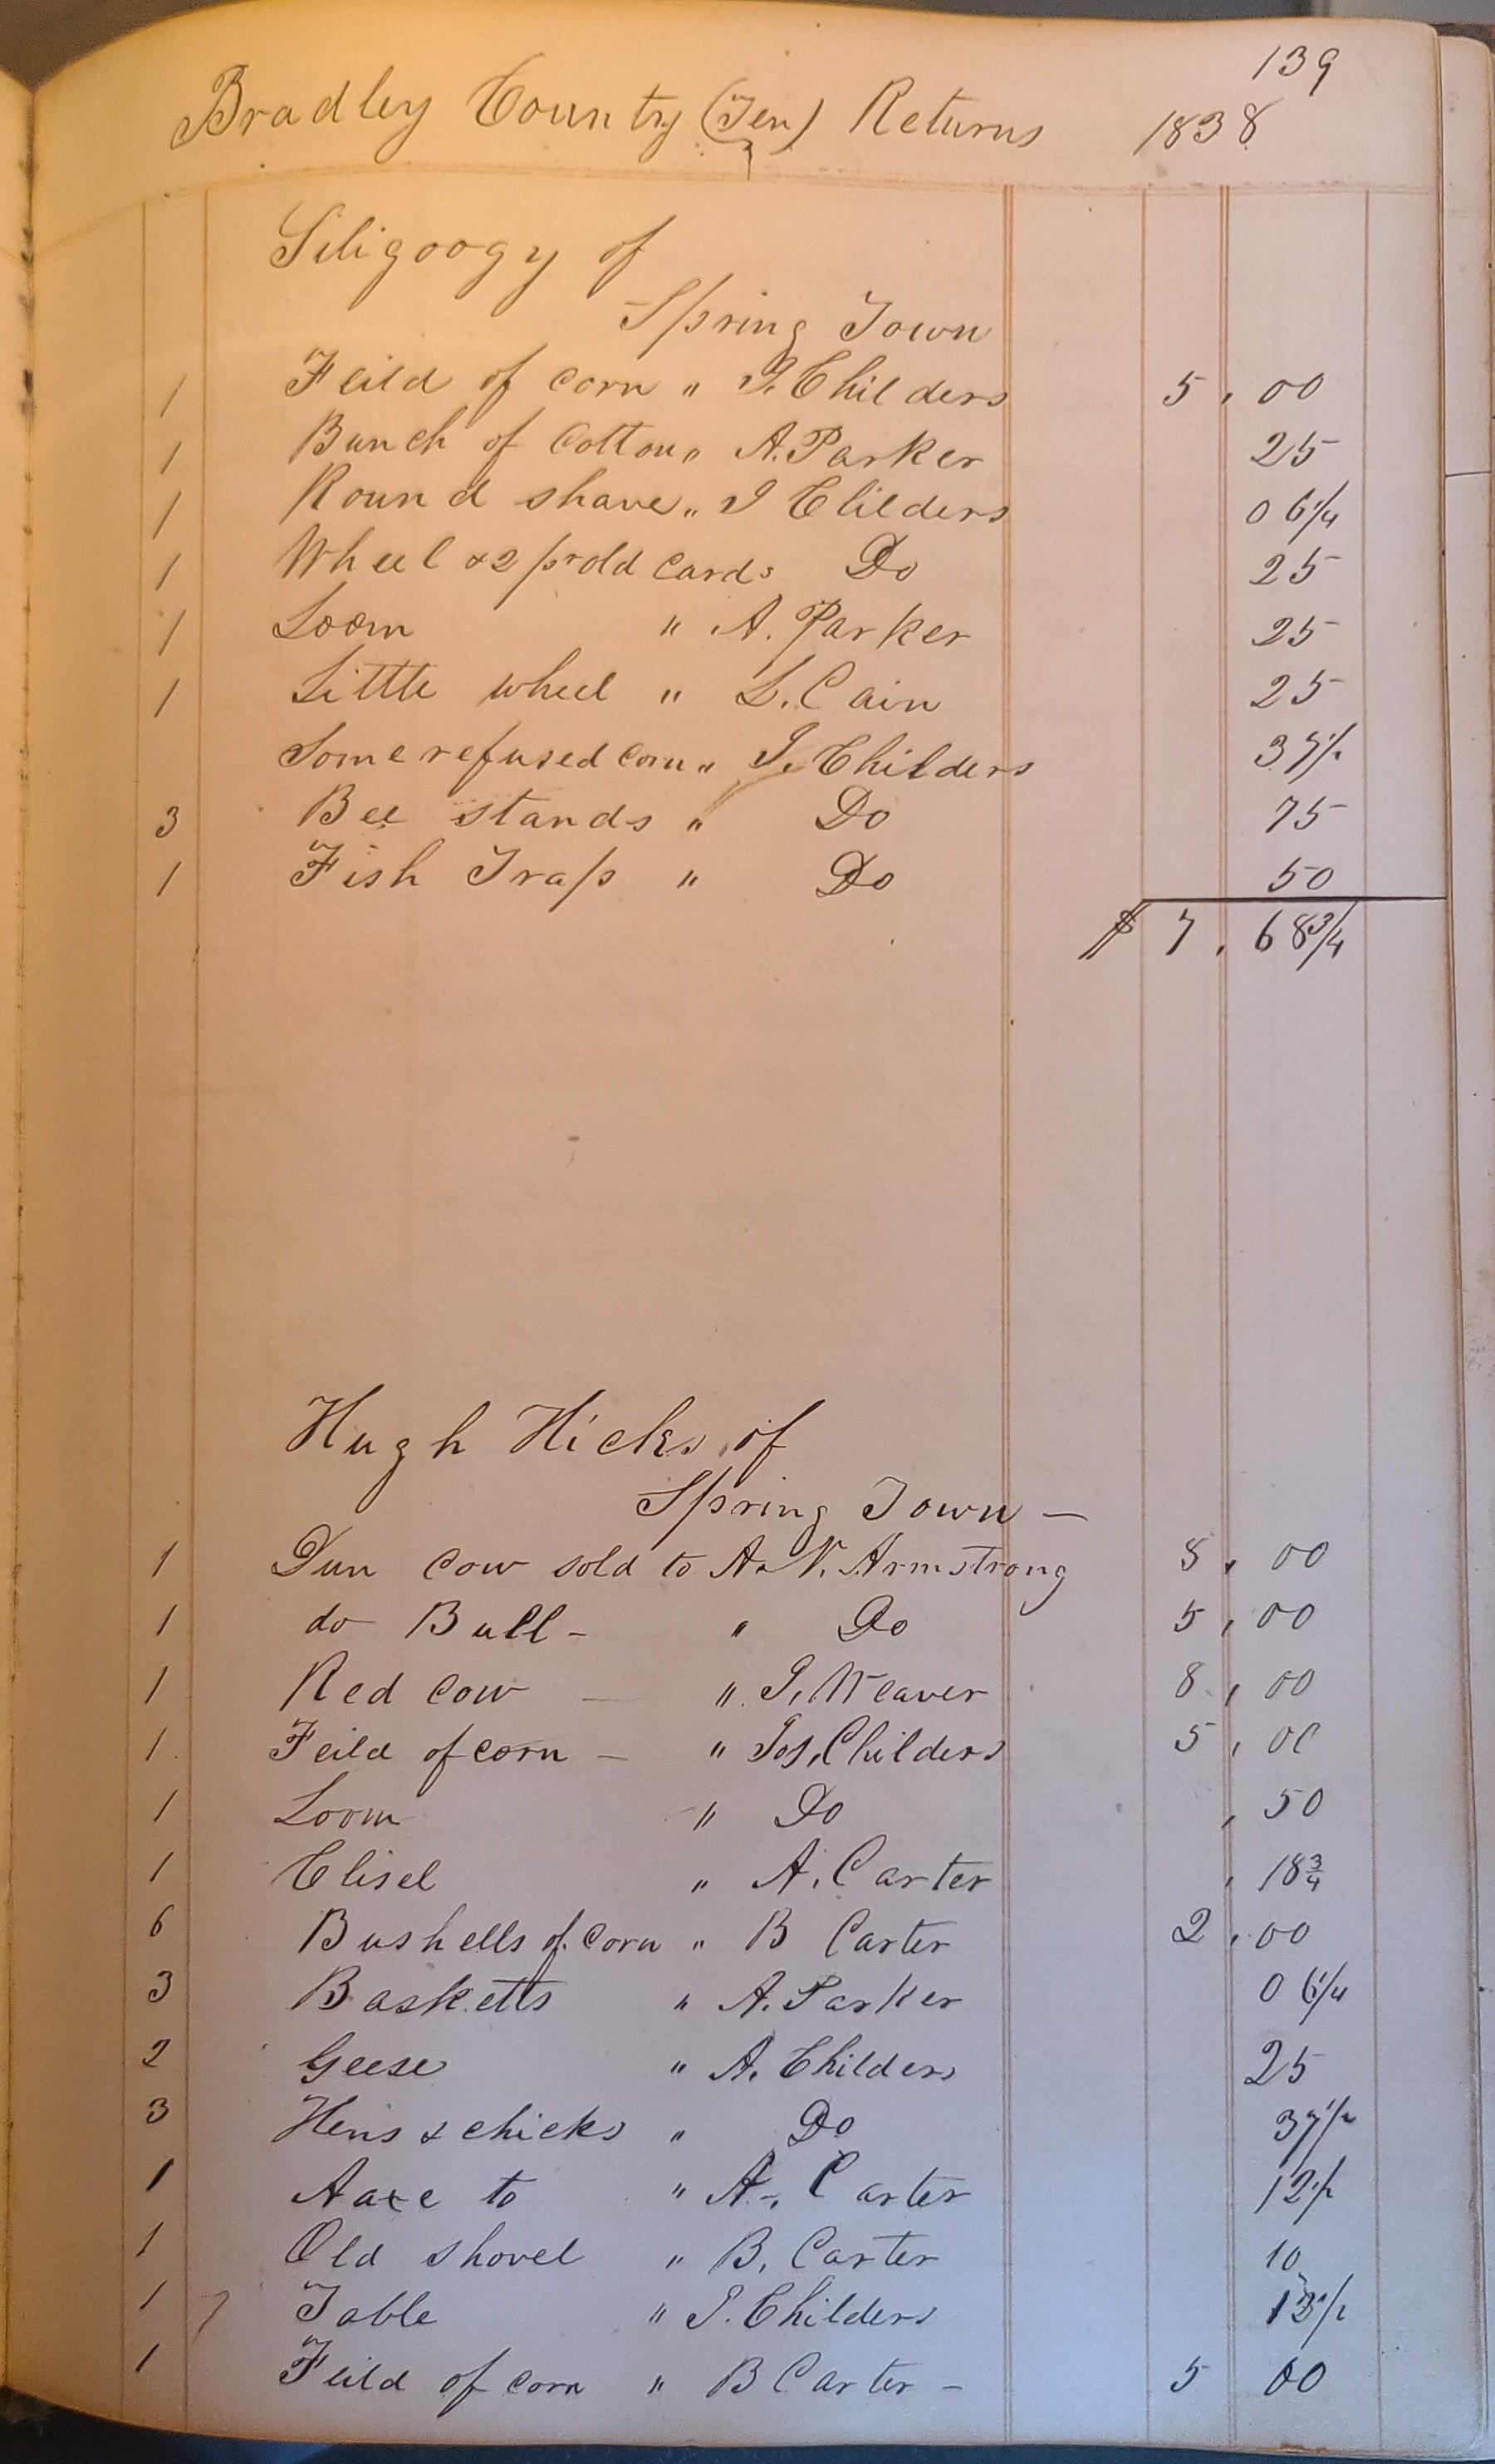 139
Bradley County (Ten) Returns 1838
Siligoogy of
Spring Town
1 Feild of corn " J. Childers 5,00
1 Bunch of Cotton " A. Parker 25
1 Round shave " J Childers 06 1/4
1 Wheel & 2 pr old Cards Do 25
1 Loom " A. Parker 25
1 Little wheel " L. Cain 25
Some refused corn " J. Childers 37 1/2
3 Bee stands " Do 75
1 Fish Trap " Do 50
$ 7,68 3/4
Hugh Hicks of
Spring Town —
1 Dun Cow sold to A. V. Armstrong 8,00
1 do Bull - " Do 5,00
1 Red Cow — " J. Weaver 8,00
1 Feild of corn — " Jos, Childers 5,00
1 Loom " Do ,50
1 Chisel " A. Carter ,18 3/4
6 Bushells of Corn " B Carter 2,00
3 Basketts " A. Parker 06 1/4
2 Geese " A. Childers 25
3 Hens & chicks " Do 37 1/2
1 Aaxe to " A. Carter 12 1/2
1 Old shovel " B. Carter 10
1 Table " J. Childers
1 Feild of corn " B Carter — 5 00